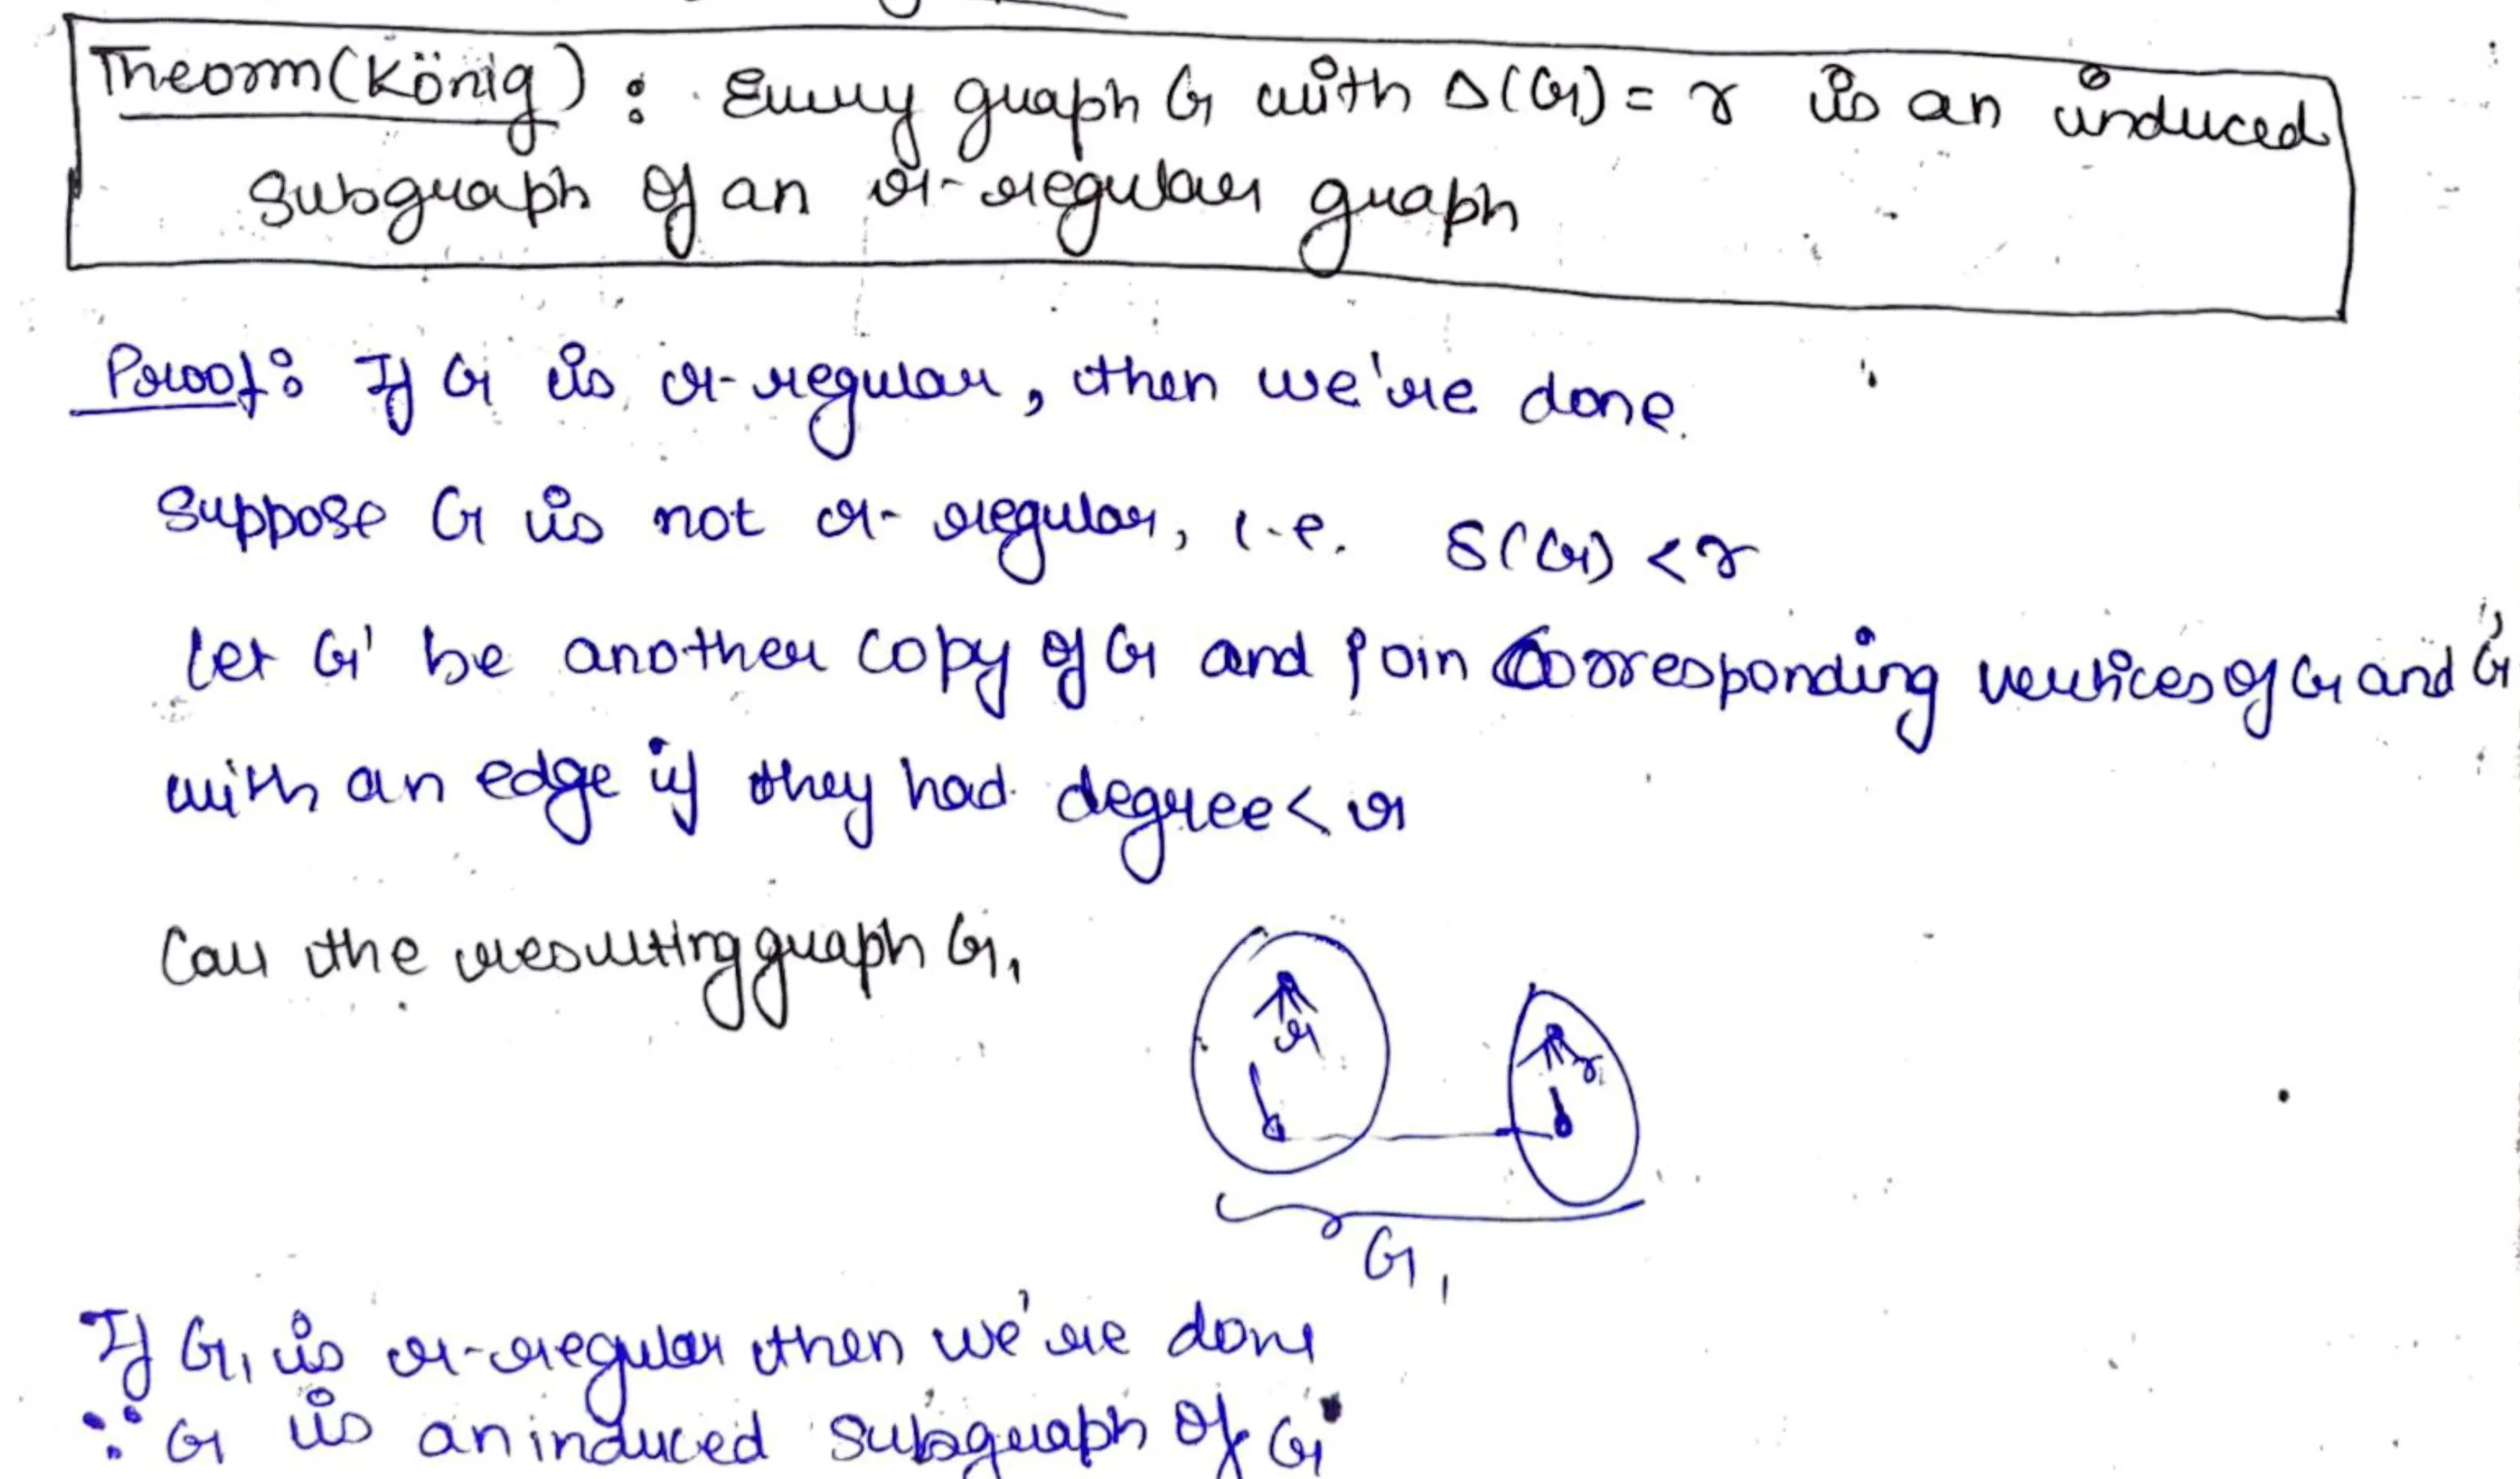 Theorm (König) : Every graph G with Δ(G) = r is an induced
subgraph of an r-regular graph
Proof: If G is r-regular, then we're done.
Suppose G is not r-regular, i.e. δ(G) < r
Let G' be another copy of G and join corresponding vertices of G and G'
with an edge if they had degree < r
Call the resulting graph G₁
r
r
G₁
If G₁ is r-regular then we're done
∵ G is an induced subgraph of G₁